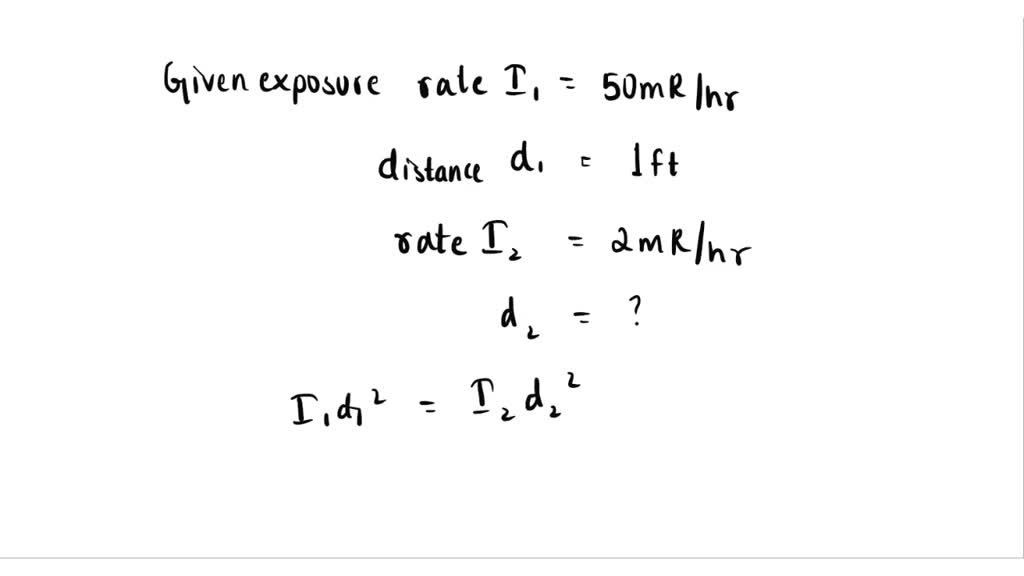 Given exposure rate I₁ = 50mR/hr
distance d₁ = 1ft
rate I₂ = 2mR/hr
d₂ = ?
I₁d₁² = I₂d₂²